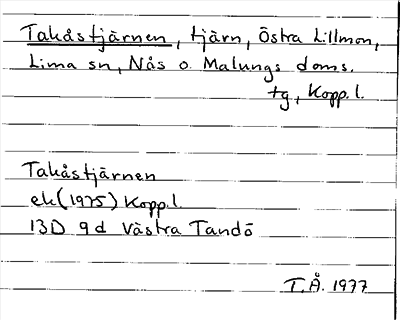 Takåstjärnen, tjärn, Östra Lillmon,
Lima sn, Nås o. Malungs doms.
tg, Kopp. l.
Takåstjärnen
ek (1975) Kopp.l.
13D 9d Västra Tandö
T.Å. 1977